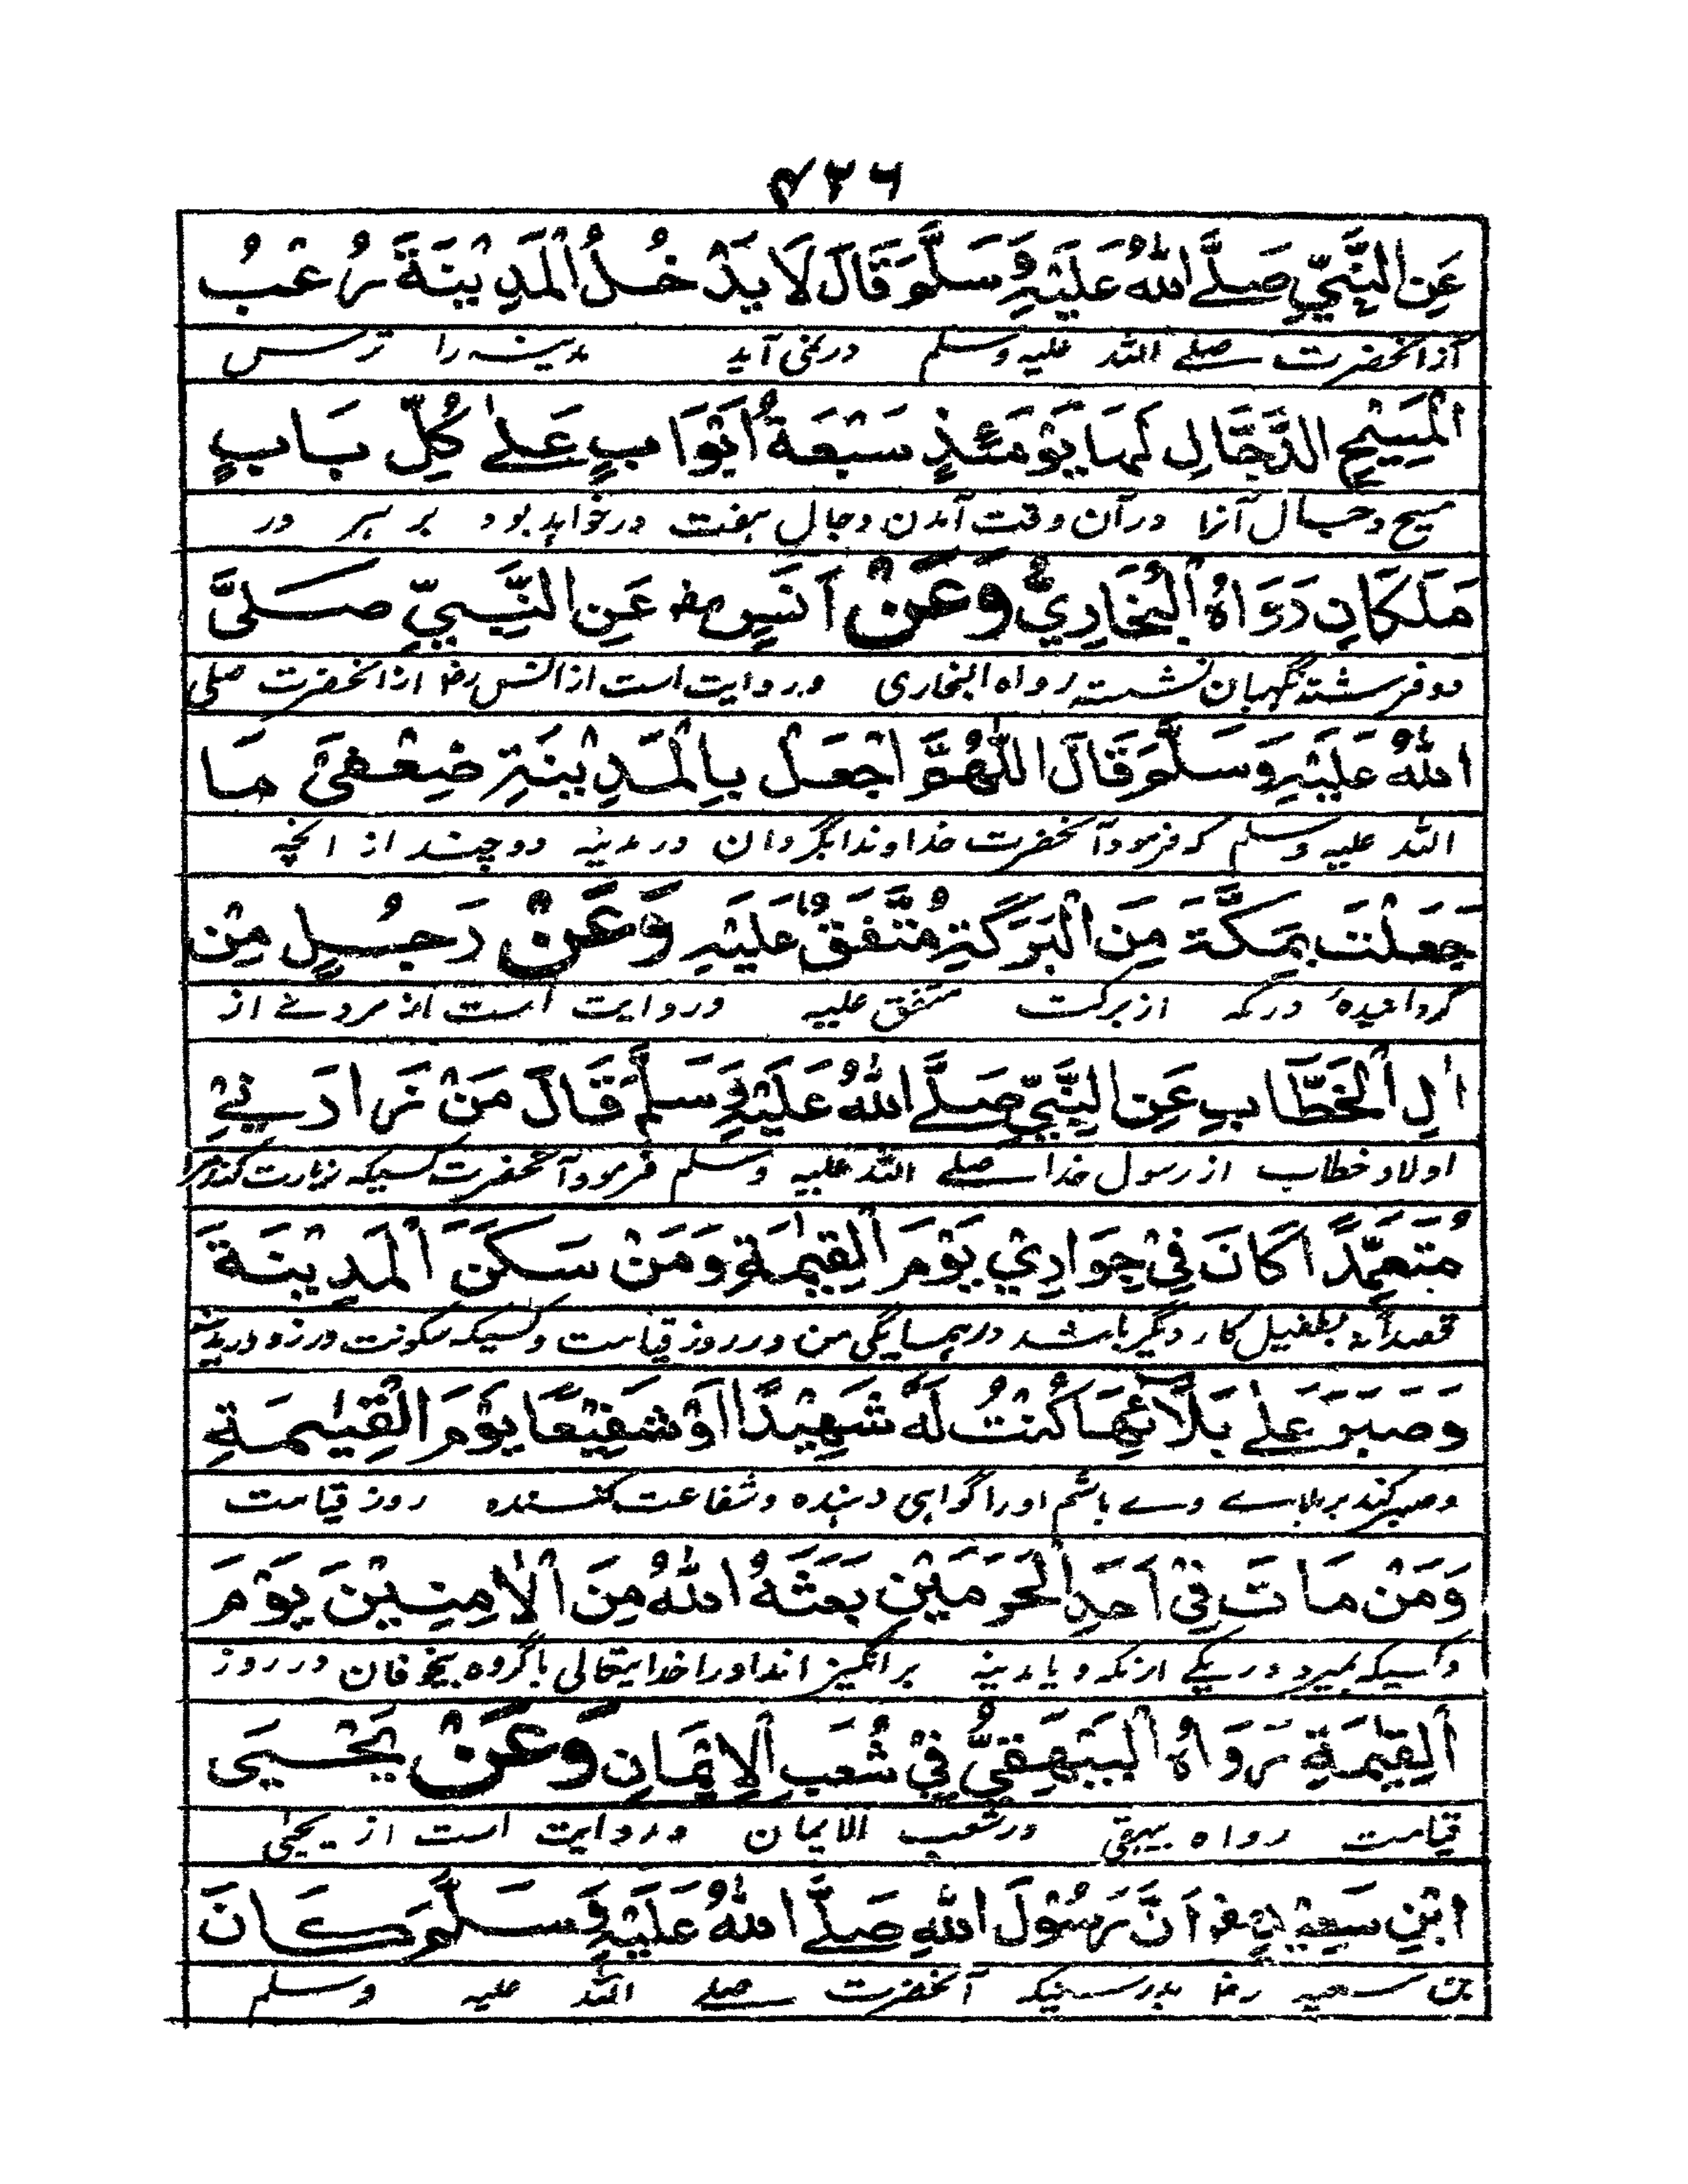 ۴۲۶
عَنِ النَّبِيِّ صَلَّے اللهُ عَلَيْهِ وَسَلَّمَ قَالَ لَا يَدْخُلُ الْمَدِيْنَةَ رُعْبُ
آز آنحضرت صلے اللہ علیہ وسلم درنمی آید مدینہ را ترس
الْمَسِيْحِ الدَّجَّالِ لَهَا يَوْمَئِذٍ سَبْعَةُ اَبْوَابٍ عَلٰے كُلِّ بَابٍ
مسیح دجال آنرا درآن وقت آمدن دجال ہفت در خواہد بود بر ہر در
مَلَكَانِ رَوَاهُ الْبُخَارِيُّ وَعَنْ اَنَسٍ رضہ عَنِ النَّبِيِّ صَلَّى
دو فرشتہ نگہبان نشستہ رواہ البخاری و روایت است از انس رضا از آنحضرت صلی
اللهُ عَلَيْهِ وَسَلَّمَ قَالَ اللّٰهُمَّ اجْعَلْ بِالْمَدِيْنَةِ ضِعْفَيْ مَا
اللہ علیہ وسلم کہ فرمود آنحضرت خداوندا بگردان در مدینہ دو چند از انچہ
جَعَلْتَ بِمَكَّةَ مِنَ الْبَرَكَةِ مُتَّفَقٌ عَلَيْهِ وَعَنْ رَجُلٍ مِنْ
گردانیدۂ در مکہ از برکت متفق علیہ و روایت است از مردے از
اٰلِ الْخَطَّابِ عَنِ النَّبِيِّ صَلَّے اللهُ عَلَيْهِ وَسَلَّمَ قَالَ مَنْ زَارَنِيْ
اولاد خطاب از رسول خدا صلے اللہ علیہ وسلم فرمود آنحضرت کسیکہ زیارت کند مرا
مُتَعَمِّدًا كَانَ فِيْ جِوَارِيْ يَوْمَ الْقِيٰمَةِ وَمَنْ سَكَنَ الْمَدِيْنَةَ
قصداً نہ بطفیل کار دیگر باشد در ہمسایگی من در روز قیامت و کسیکہ سکونت ورزد در مدینہ
وَصَبَرَ عَلٰے بَلَائِهَا كُنْتُ لَهٗ شَهِيْدًا اَوْ شَفِيْعًا يَوْمَ الْقِيٰمَةِ
و صبر کند بر بلاے وے باشم اورا گواہی دہندہ و شفاعت کنندہ روز قیامت
وَمَنْ مَاتَ فِيْ اَحَدِ الْحَرَمَيْنِ بَعَثَهُ اللهُ مِنَ الْاٰمِنِيْنَ يَوْمَ
و کسیکہ بمیرد در یکے از مکہ و یا مدینہ برانگیزاند اورا خدایتعالی با گروہ بیخوفان در روز
الْقِيٰمَةِ رَوَاهُ الْبَيْهَقِيُّ فِيْ شُعَبِ الْاِيْمَانِ وَعَنْ يَحْيَى
قیامت رواہ بیہقی در شعب الایمان و روایت است از یحیٰی
ابْنِ سَعِيْدٍ رضہ اَنَّ رَسُوْلَ اللهِ صَلَّے اللهُ عَلَيْهِ وَسَلَّمَ كَانَ
بن سعید رضا بدرستیکہ آنحضرت صلے اللہ علیہ وسلم